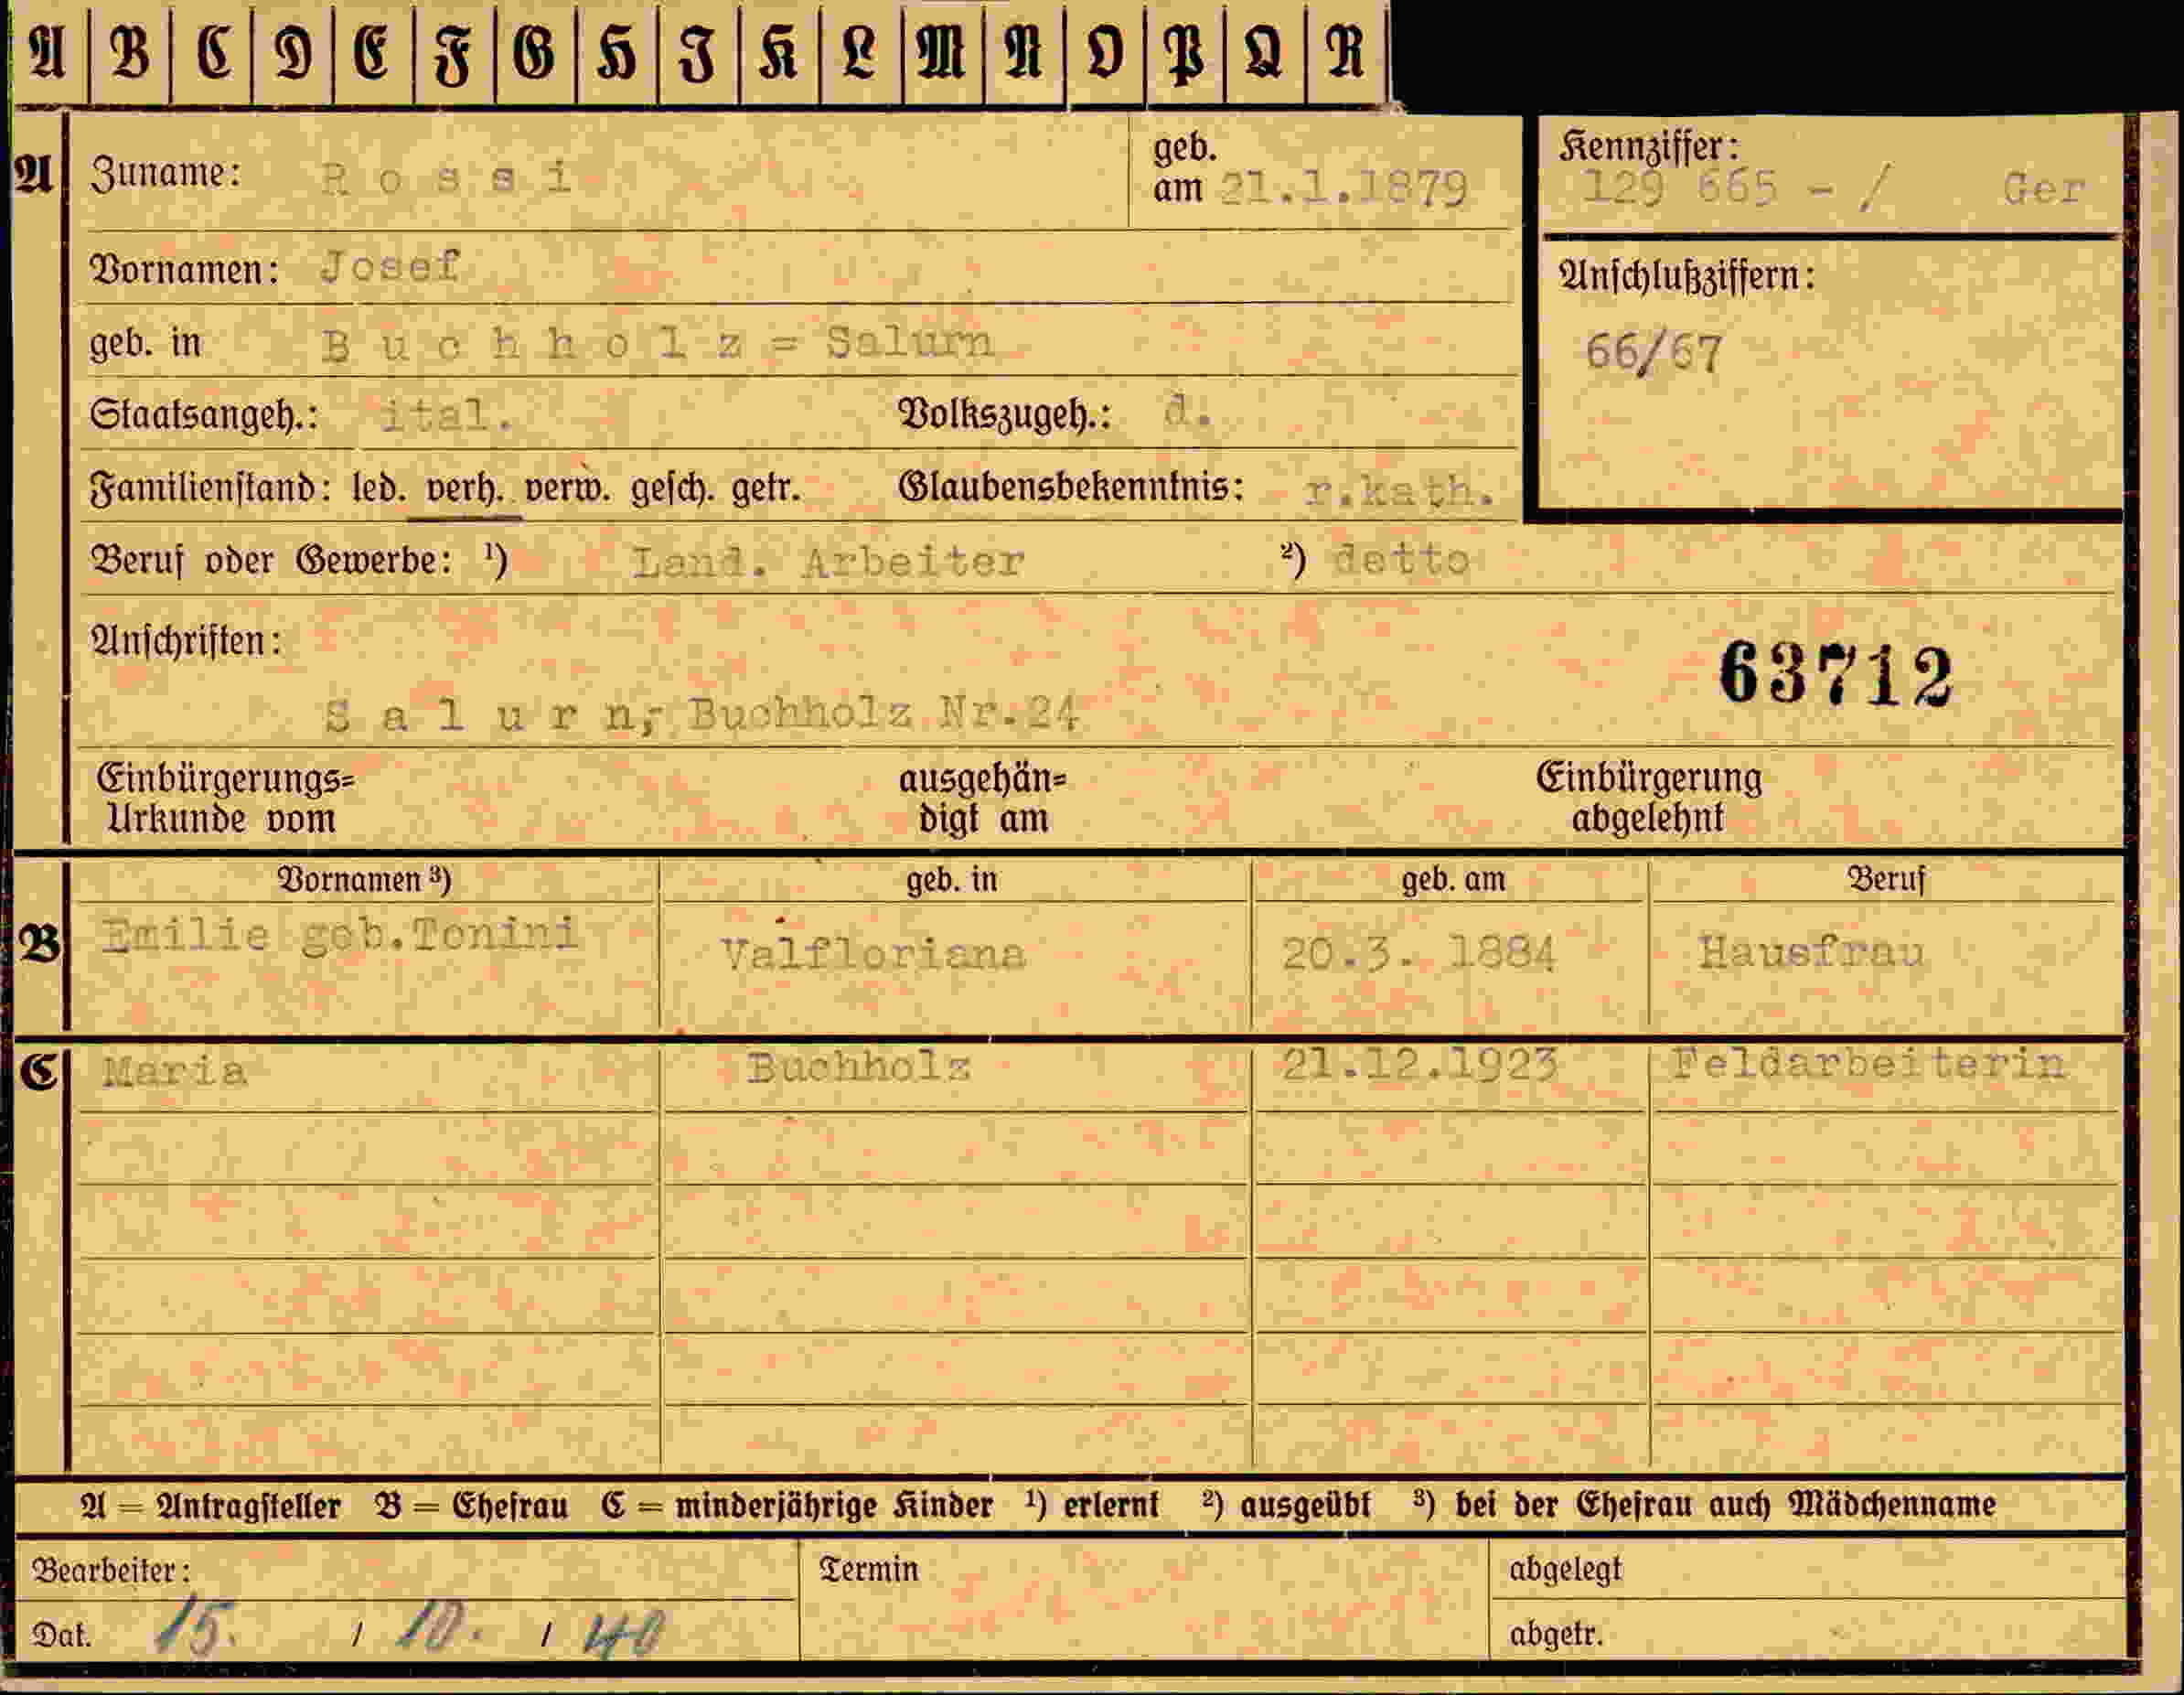 A B C D E F G H I K L M N O P Q R
A Zuname: Rossi geb. am 21.1.1879
Kennziffer: 129 665 - / Ger
Vornamen: Josef
Anschlußziffern: 66/67
geb. in Buchholz = Salurn
Staatsangeh.: ital. Volkszugeh.: d.
Familienstand: led. verh. verw. gesch. getr. Glaubensbekenntnis: r.kath.
Beruf oder Gewerbe: ¹) Land. Arbeiter ²) detto
Anschriften:
63712
Salurn,- Buchholz Nr.24
Einbürgerungs= ausgehän= Einbürgerung
Urkunde vom digt am abgelehnt
Vornamen ³) geb. in geb. am Beruf
B Emilie geb.Tonini Valfloriana 20.3. 1884 Hausfrau
C Maria Buchholz 21.12.1923 Feldarbeiterin
A = Antragsteller B = Ehefrau C = minderjährige Kinder ¹) erlernt ²) ausgeübt ³) bei der Ehefrau auch Mädchenname
Bearbeiter: Termin abgelegt
Dat. 15. / 10. / 40 abgetr.